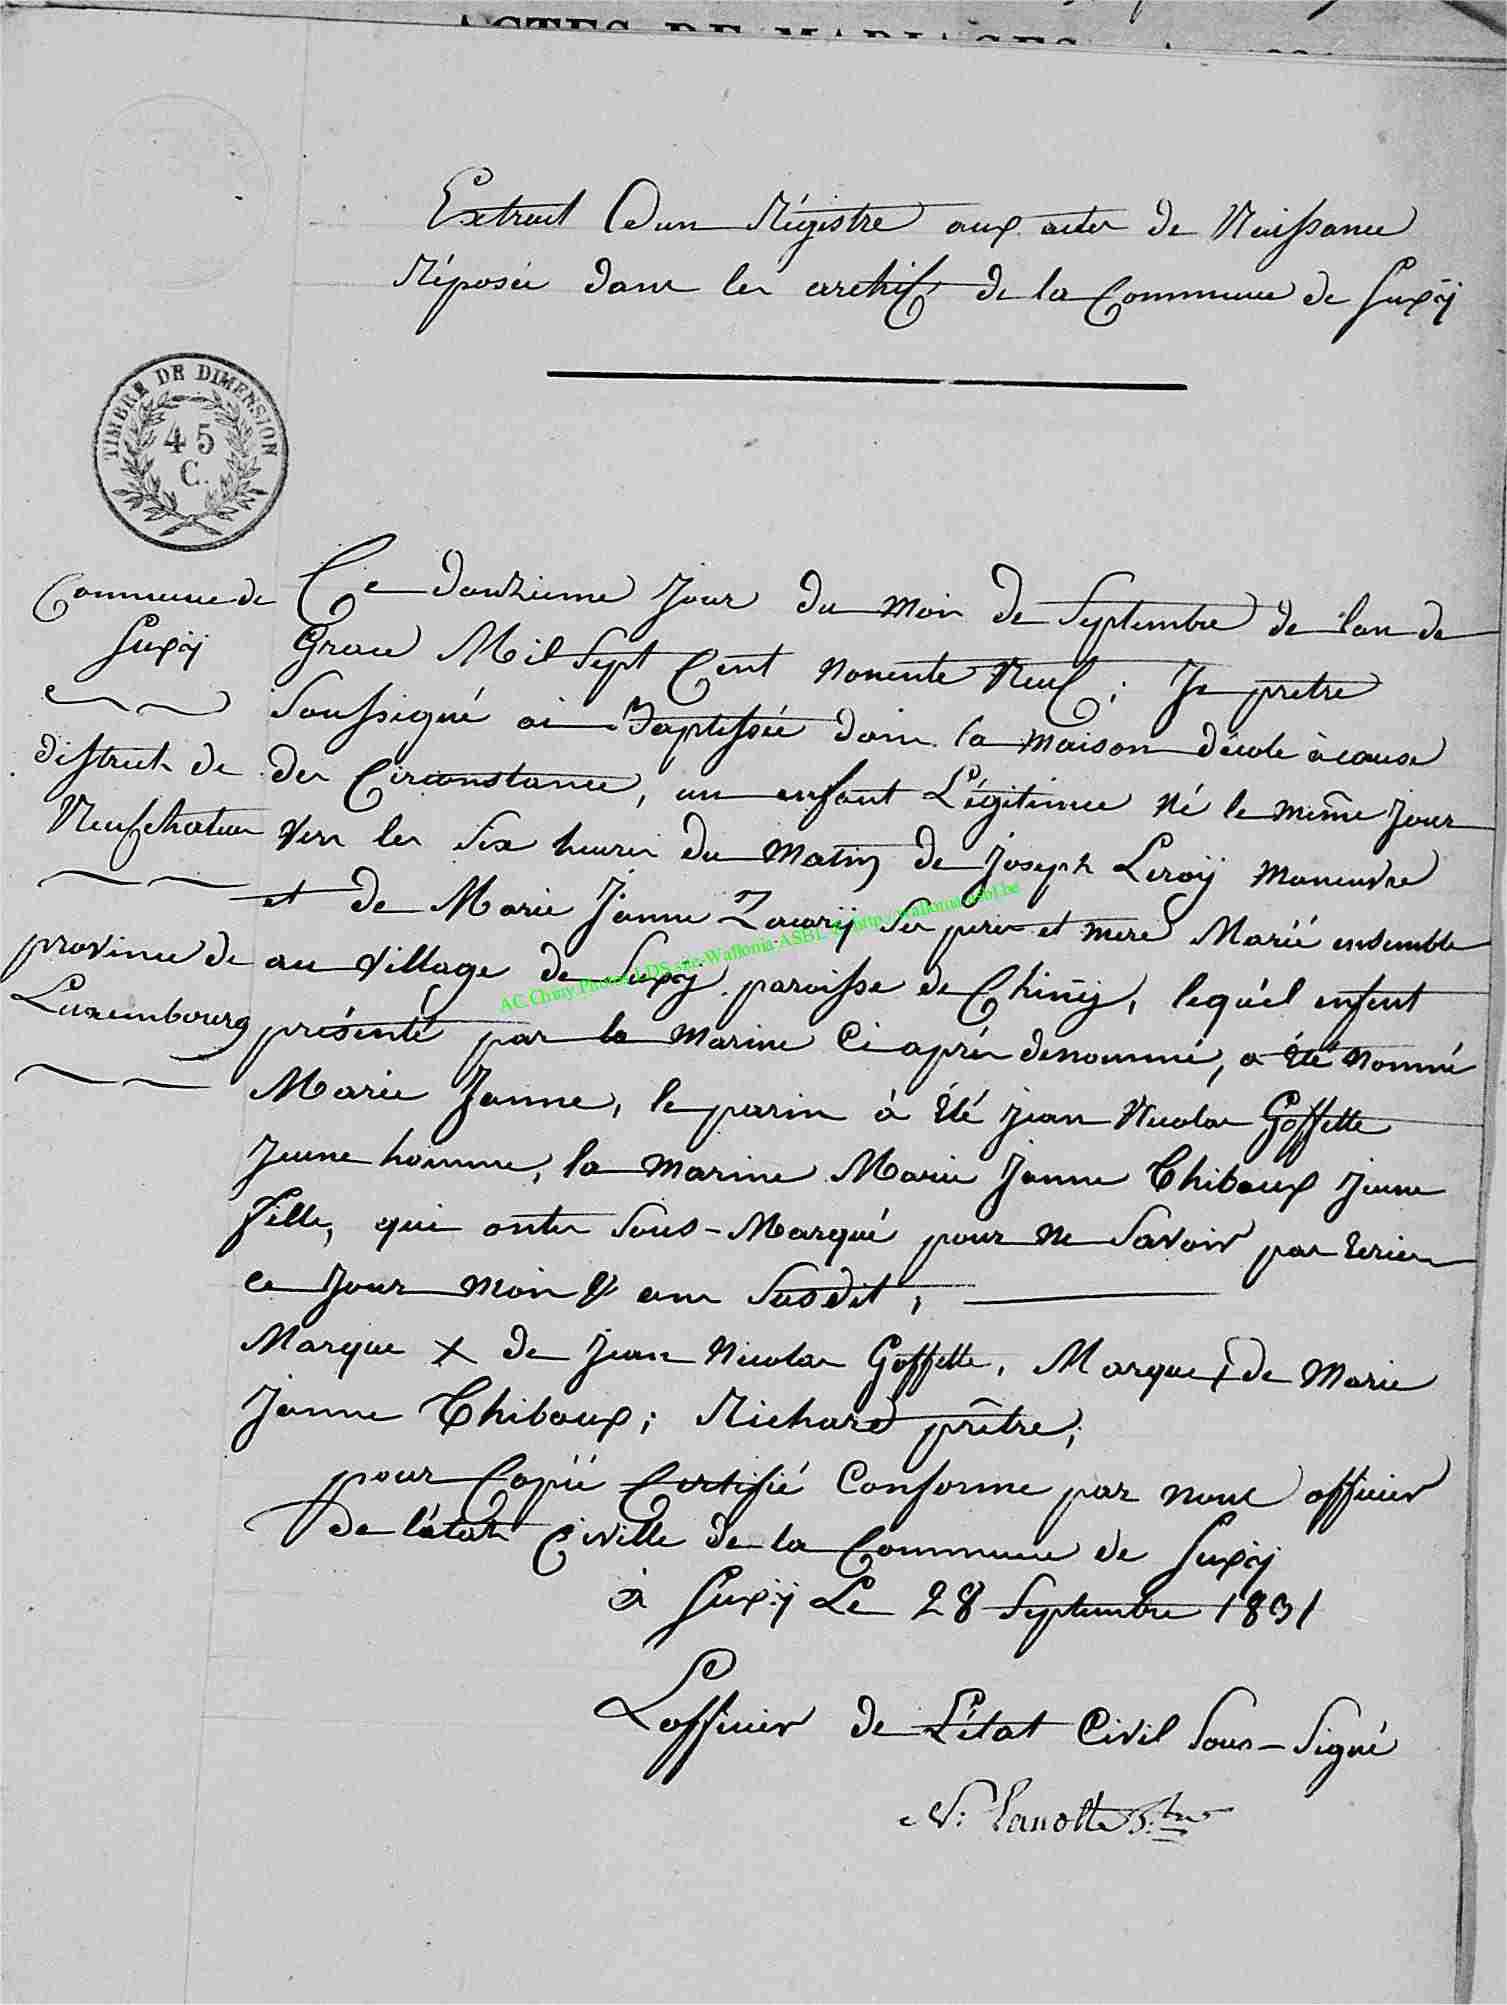 ACTES DE MARIAGES
Extrait Dun Régistre aux actes de Naissance
Réposée dans les archif de la Commune de Suxÿ
TIMBRE DE DIMENSION
45
C.
Commune de
Suxÿ
district de
Neufchateau
province de
Luxembourg
Ce douzieme Jour du mois de Septembre de l'an de
Grace Mil Sept Cent nonente Neuf; Je pretre
Soussigné ai Baptissée dans la maison décole àcause
des Circonstance, un enfant Légitimee né le même Jour
vers les Six heures du matin de Joseph Leroÿ maneuvre
et de Marie Janne Zacarÿ Ses perès et mere Marié ensemble
au village de Suxÿ paroisse de Chinÿ, lequél enfent
présenté par la marine Ci après denommé, a été nommé
Marie Janne, le parin à été jean Nicolas Goffette
Jeune homme, la marine Marie Janne Thiboux Jeune
fille, qui onts Sous-Marqué pour ne Savoir pas Ecrier
ce Jour mois & ans Susdit;
Marque X de Jean Nicolas Goffette, Marque + de Marie
Janne Thiboux; Richard prêtre;
pour Copië Certifié Conforme par nous officier
De l'état Civille de la Commune de Suxÿ
à Suxÿ Le 28 Septembre 1831
Lofficier de L'état Civil Sous-Signé
N: Lanotte
AC Chiny Photos LDS site Wallonia ASBL © http://wallonia-asbl.be